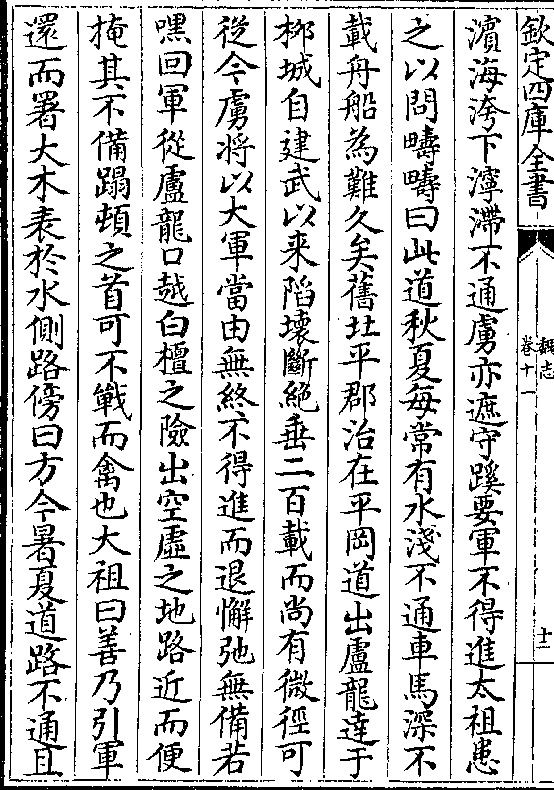 欽定四庫全書
魏志
卷十一
十二
濱海洿下濘滯不通虜亦遮守蹊要軍不得進太祖患
之以問疇疇曰此道秋夏每常有水淺不通車馬深不
載舟船為難久矣舊北平郡治在平岡道出盧龍達于
栁城自建武以来陷壊斷絶垂二百載而尚有微徑可
從今虜将以大軍當由無終不得進而退懈弛無備若
嘿回軍從盧龍口越白檀之險出空虛之地路近而便
掩其不備蹋頓之首可不戰而禽也大祖曰善乃引軍
還而署大木表於水側路傍曰方今暑夏道路不通且